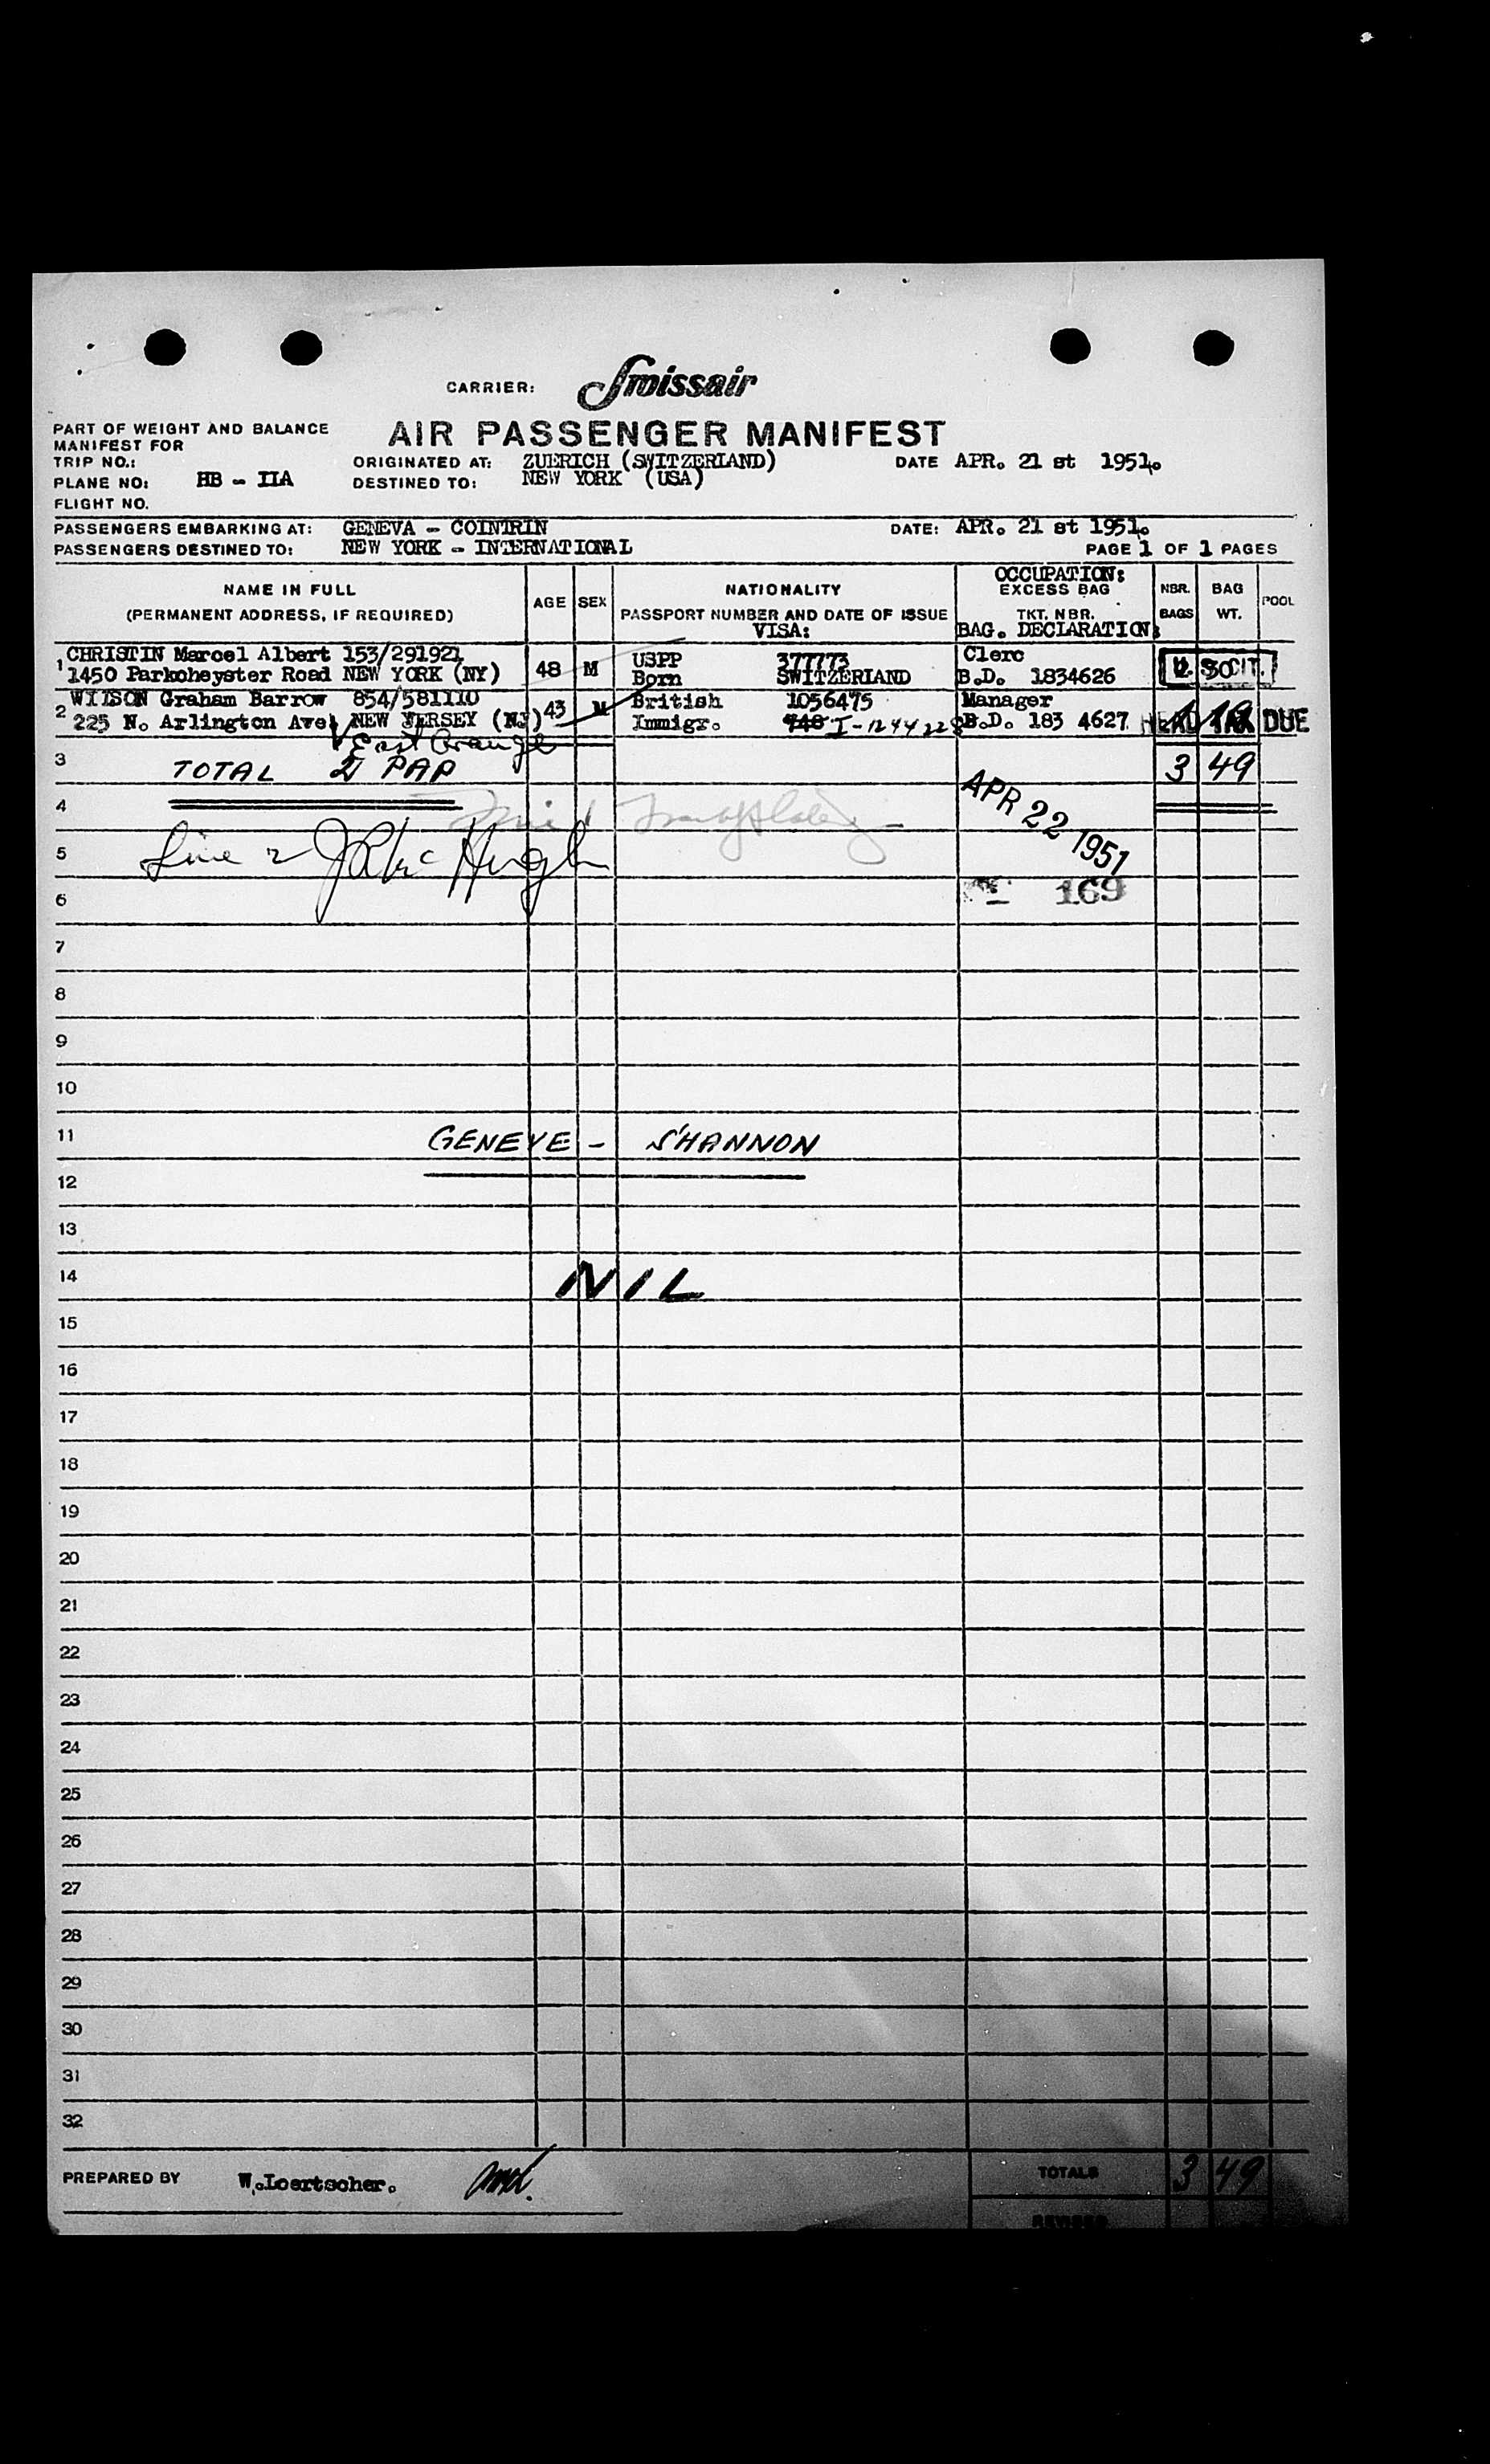 CARRIER: Swissair
PART OF WEIGHT AND BALANCE
MANIFEST FOR
AIR PASSENGER MANIFEST
TRIP NO.:
ORIGINATED AT: ZUERICH (SWITZERLAND) DATE APR. 21 st 1951.
PLANE NO: HB - IIA DESTINED TO: NEW YORK (USA)
FLIGHT NO.
PASSENGERS EMBARKING AT: GENEVA - COINTRIN DATE: APR. 21 st 1951.
PASSENGERS DESTINED TO: NEW YORK - INTERNATIONAL PAGE 1 OF 1 PAGES
NAME IN FULL
(PERMANENT ADDRESS, IF REQUIRED)
AGE SEX
NATIONALITY
PASSPORT NUMBER AND DATE OF ISSUE
VISA:
OCCUPATION:
EXCESS BAG
TKT. NBR.
BAG. DECLARATION:
NBR.
BAGS
BAG
WT.
POOL
1 CHRISTIN Marcel Albert 153/291921 48 M USPP 377773 Clerc
1450 Parkcheyster Road NEW YORK (NY) Born SWITZERLAND B.D. 1834626 2 30 U.S. CIT.
2 WIISON Graham Barrow 854/581110 43 M British 1056475 Manager
225 N. Arlington Ave NEW JERSEY (NJ) Immigr. 748 I-1244228 B.D. 183 4627 1 19 HEAD TAX DUE
East Orange
3 TOTAL 2 PAP 3 49
4
APR 22 1951
5 Line 2
6 169
7
8
9
10
11 GENEVE - SHANNON
12
13
14 NIL
15
16
17
18
19
20
21
22
23
24
25
26
27
28
29
30
31
32
PREPARED BY W.Loertscher. TOTALS 3 49
REVISED